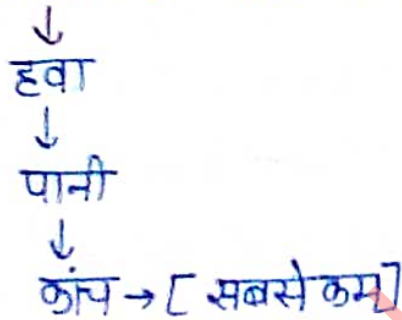 ↓
हवा
↓
पानी
↓
कांच → [ सबसे कम ]